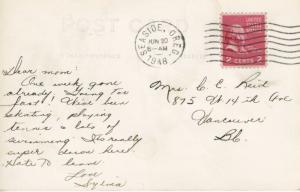 SEASIDE, OREG.
JUN 20
6-AM
1948
UNITED STATES
2 CENTS 2
Dear mom:
One week gone
already. Going too
fast! I've been
skating, playing
tennis & lots of
swimming. It's really
super down here.
Hate to leave
Love
Sylvia
Mrs. C. E. Reid
1875 W 14th Ave
Vancouver
B.C.